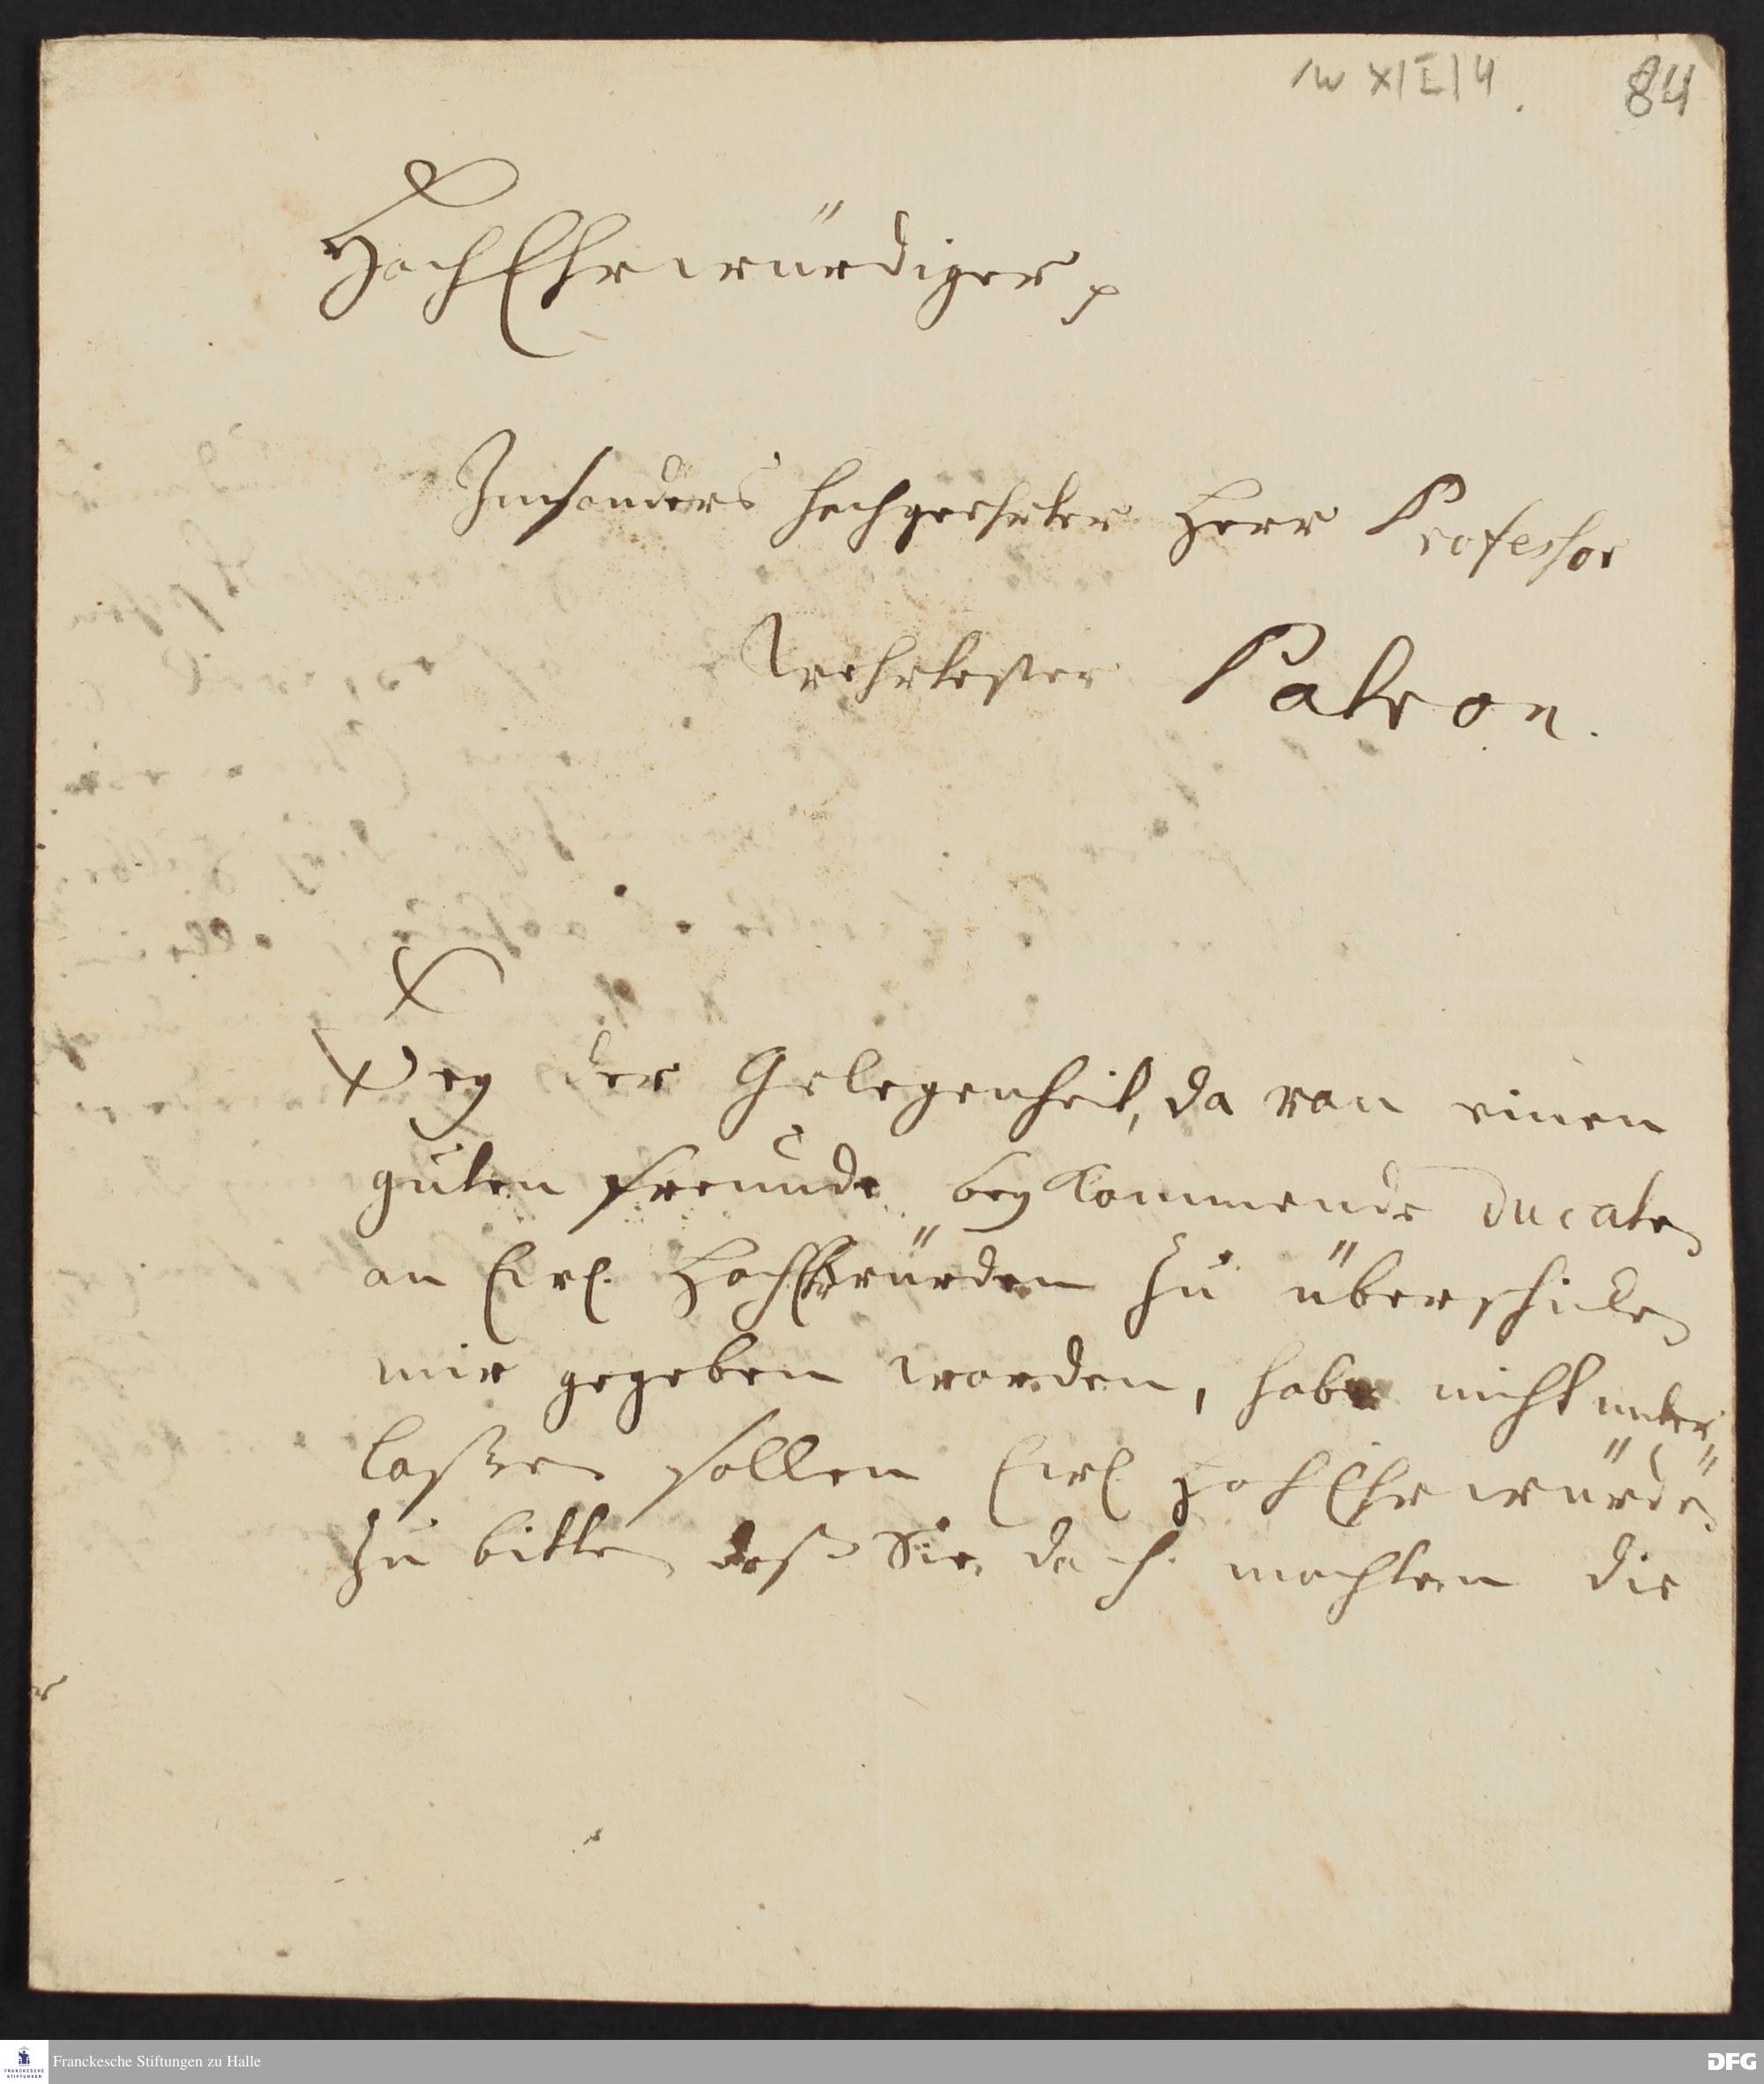 XI I 4. 84
HochEhrwürdiger p
Insonders hochgeehrter Herr Professor
Wehrtester Patron.
Bey der Gelegenheit, da von einen
guten Freunde beykommende Ducaten
an Ewl. HochEhrwürden zu überschicken
mir gegeben worden, habe nicht unter
laßen sollen Ewl HochEhrwürden
zu bitten daß Sie doch möchten die
Franckesche Stiftungen zu Halle
FRANCKESCHE
STIFTUNGEN
DFG